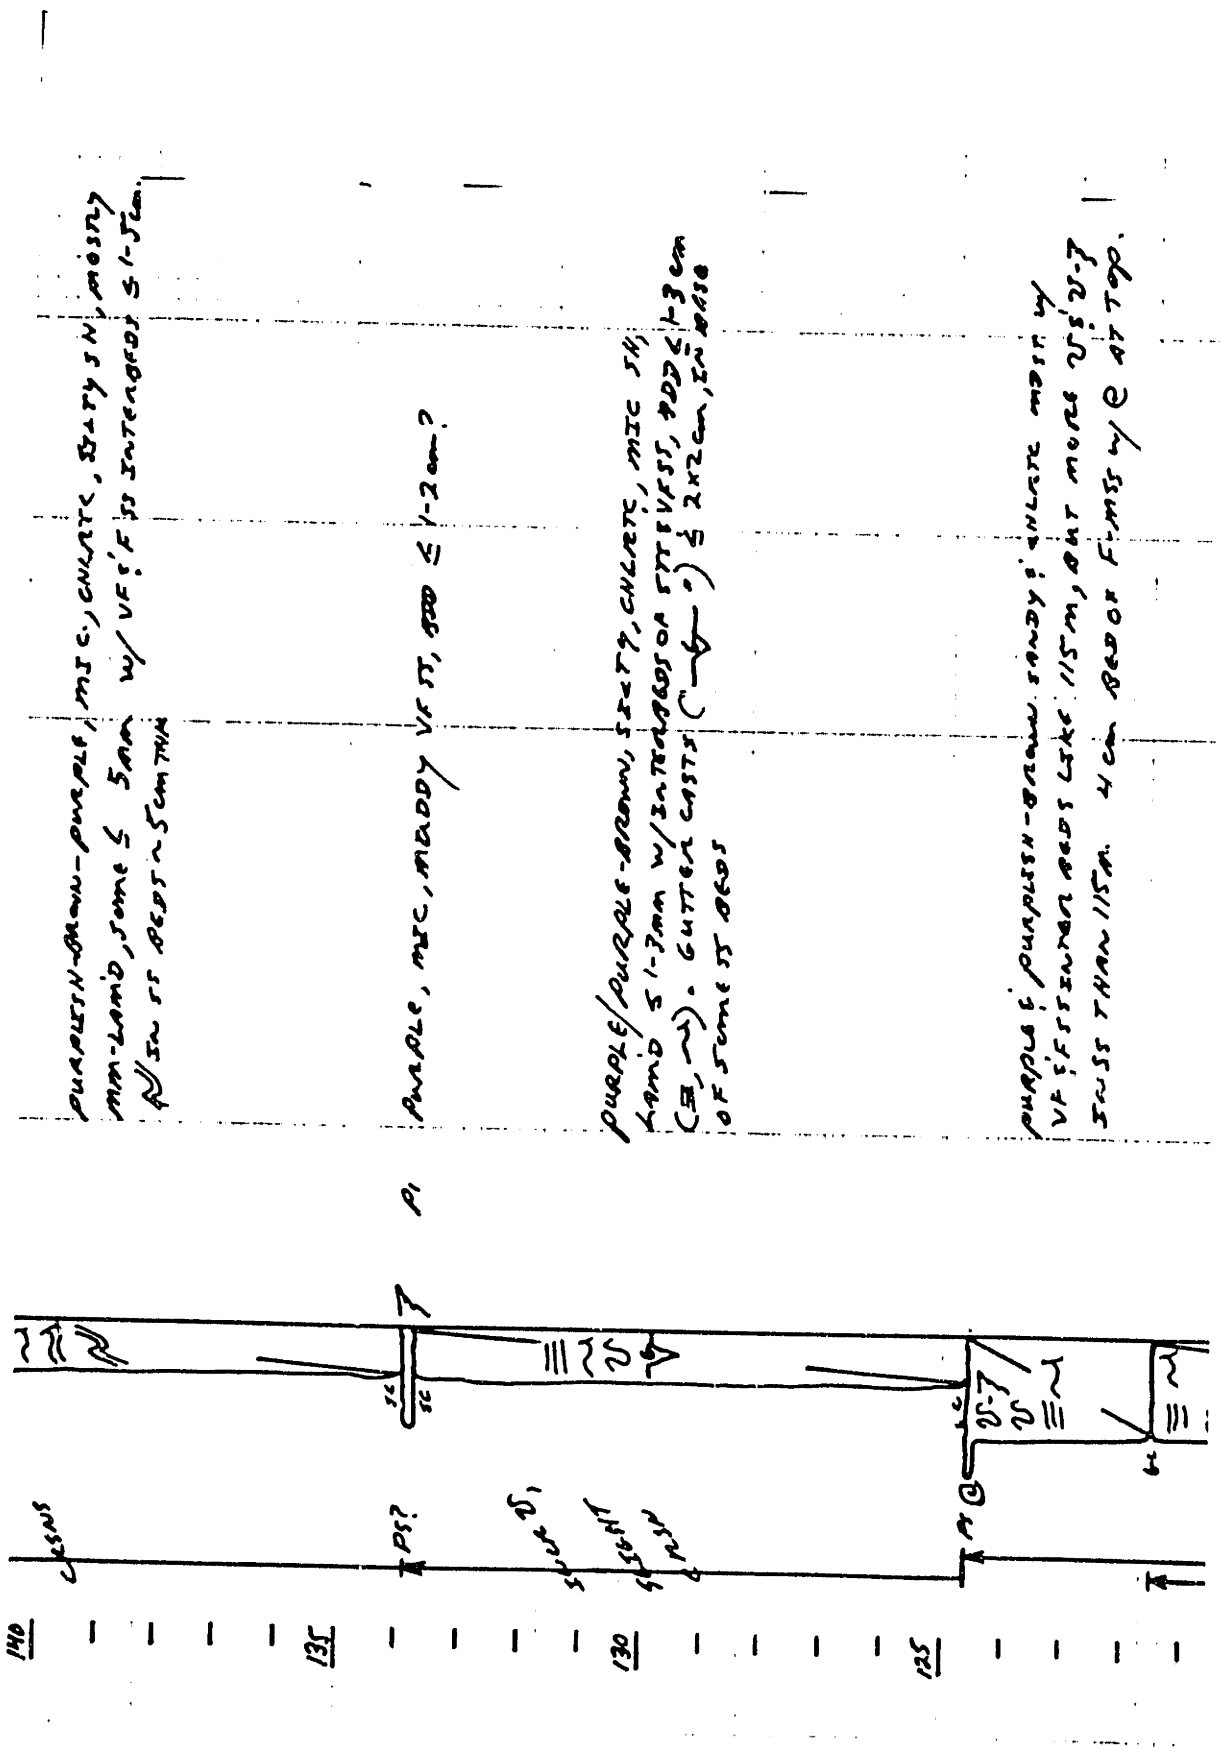 140
135
130
125
PS?
PS
P1
SC
SC
PURPLISH-BROWN-PURPLE, MIC., CHLRTC, SILTY SH, MOSTLY
MM-LAMD, SOME ≤ 5MM W/ VF & F SS INTERBEDS ≤ 1-5cm.
IN SS BEDS ~5cm THK
PURPLE, MIC, MUDDY VF SS, BDD ≤ 1-2cm?
PURPLE/PURPLE-BROWN, SILTY, CHLRTC, MIC SH,
LAMD ≤ 1-3mm W/INTERBEDS OF VFSS, BDD ≤ 1-3 cm
GUTTER CASTS ≤ 2x2cm, IN BASE
OF SOME SS BEDS
PURPLE & PURPLISH-BROWN SANDY & CHLRTC MDST W/
VF & F SS INTER BEDS LIKE 115M, BUT MORE
IN SS THAN 115M. 4cm BED OF F-MSS W/ @ AT TOP.